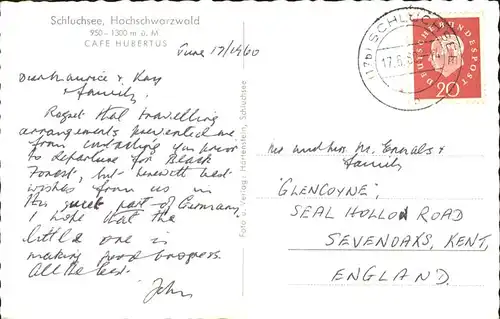 Schluchsee, Hochschwarzwald
950 - 1300 m ü. M
CAFE HUBERTUS
June 17/1960
Dear Maurice & Kay
& family
Regret that travelling
arrangements prevented me
from contacting you prior
to departure for Black
Forest, but herewith best
wishes from us in
this quiet part of Germany,
I hope that the
little one is
making good progress.
All the best.
John
Foto u. Verlag: Hartenstein, Schluchsee
(17b) SCHLUCHSEE
17.6.
DEUTSCHE BUNDESPOST
20
Mr and Mrs. M.
& family
"GLENCOYNE",
SEAL HOLLOW ROAD
SEVENOAKS, KENT,
ENGLAND.